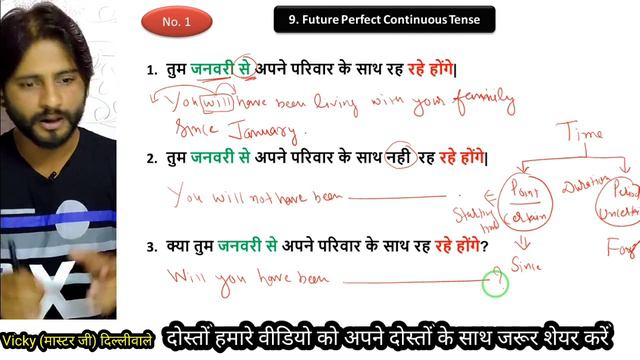 No. 1
9. Future Perfect Continuous Tense
1. तुम जनवरी से अपने परिवार के साथ रह रहे होंगे|
You will have been living with your family
Since January.
2. तुम जनवरी से अपने परिवार के साथ नही रह रहे होंगे|
You will not have been __________ .
3. क्या तुम जनवरी से अपने परिवार के साथ रह रहे होंगे?
Will you have been __________ ?
Time
Point
Certain
Duration
Period
Starting
Since
Vicky (मास्टर जी) दिल्लीवाले
दोस्तों हमारे वीडियो को अपने दोस्तों के साथ जरूर शेयर करें